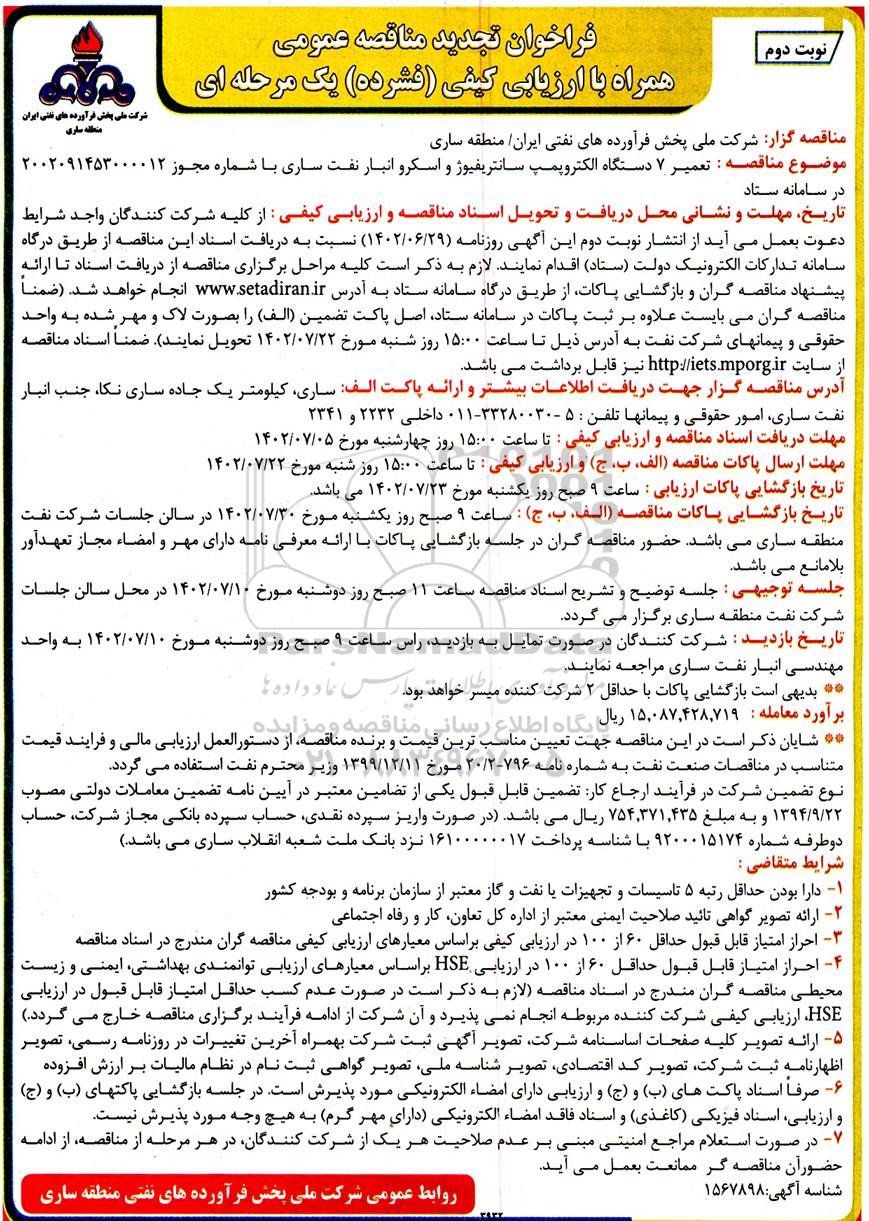 نوبت دوم
فراخوان تجدید مناقصه عمومی
همراه با ارزیابی کیفی (فشرده) یک مرحله ای
شرکت ملی پخش فرآورده های نفتی ایران
منطقه ساری
مناقصه گزار: شرکت ملی پخش فرآورده های نفتی ایران/ منطقه ساری
موضوع مناقصه : تعمیر ۷ دستگاه الکتروپمپ سانتریفیوژ و اسکرو انبار نفت ساری با شماره مجوز ۲۰۰۲۰۹۱۴۵۳۰۰۰۰۱۲
در سامانه ستاد
تاریخ، مهلت و نشانی محل دریافت و تحویل اسناد مناقصه و ارزیابی کیفی : از کلیه شرکت کنندگان واجد شرایط
دعوت بعمل می آید از انتشار نوبت دوم این آگهی روزنامه (۱۴۰۲/۰۶/۲۹) نسبت به دریافت اسناد این مناقصه از طریق درگاه
سامانه تدارکات الکترونیک دولت (ستاد) اقدام نمایند. لازم به ذکر است کلیه مراحل برگزاری مناقصه از دریافت اسناد تا ارائه
پیشنهاد مناقصه گران و بازگشایی پاکات، از طریق درگاه سامانه ستاد به آدرس www.setadiran.ir انجام خواهد شد. (ضمناً
مناقصه گران می بایست علاوه بر ثبت پاکات در سامانه ستاد، اصل پاکت تضمین (الف) را بصورت لاک و مهر شده به واحد
حقوقی و پیمانهای شرکت نفت به آدرس ذیل تا ساعت ۱۵:۰۰ روز شنبه مورخ ۱۴۰۲/۰۷/۲۲ تحویل نمایند). ضمناً اسناد مناقصه
از سایت http://iets.mporg.ir نیز قابل برداشت می باشد.
آدرس مناقصه گزار جهت دریافت اطلاعات بیشتر و ارائه پاکت الف: ساری، کیلومتر یک جاده ساری نکا، جنب انبار
نفت ساری، امور حقوقی و پیمانها تلفن : ۵ -۳۳۲۸۰۰۳۰-۰۱۱ داخلی ۲۲۳۲ و ۲۳۴۱
مهلت دریافت اسناد مناقصه و ارزیابی کیفی : تا ساعت ۱۵:۰۰ روز چهارشنبه مورخ ۱۴۰۲/۰۷/۰۵
مهلت ارسال پاکات مناقصه (الف، ب، ج) و ارزیابی کیفی : تا ساعت ۱۵:۰۰ روز شنبه مورخ ۱۴۰۲/۰۷/۲۲
تاریخ بازگشایی پاکات ارزیابی : ساعت ۹ صبح روز یکشنبه مورخ ۱۴۰۲/۰۷/۲۳ می باشد.
تاریخ بازگشایی پاکات مناقصه (الف، ب، ج) : ساعت ۹ صبح روز یکشنبه مورخ ۱۴۰۲/۰۷/۳۰ در سالن جلسات شرکت نفت
منطقه ساری می باشد. حضور مناقصه گران در جلسه بازگشایی پاکات با ارائه معرفی نامه دارای مهر و امضاء مجاز تعهدآور
بلامانع می باشد.
جلسه توجیهی : جلسه توضیح و تشریح اسناد مناقصه ساعت ۱۱ صبح روز دوشنبه مورخ ۱۴۰۲/۰۷/۱۰ در محل سالن جلسات
شرکت نفت منطقه ساری برگزار می گردد.
تاریخ بازدید : شرکت کنندگان در صورت تمایل به بازدید، راس ساعت ۹ صبح روز دوشنبه مورخ ۱۴۰۲/۰۷/۱۰ به واحد
مهندسی انبار نفت ساری مراجعه نمایند.
** بدیهی است بازگشایی پاکات با حداقل ۲ شرکت کننده میسر خواهد بود.
برآورد معامله : ۱۵,۰۸۷,۴۲۸,۷۱۹ ریال
** شایان ذکر است در این مناقصه جهت تعیین مناسب ترین قیمت و برنده مناقصه، از دستورالعمل ارزیابی مالی و فرایند قیمت
متناسب در مناقصات صنعت نفت به شماره نامه ۷۹۶-۲۰/۲ مورخ ۱۳۹۹/۱۲/۱۱ وزیر محترم نفت استفاده می گردد.
نوع تضمین شرکت در فرآیند ارجاع کار: تضمین قابل قبول یکی از تضامین معتبر در آیین نامه تضمین معاملات دولتی مصوب
۱۳۹۴/۹/۲۲ و به مبلغ ۷۵۴,۳۷۱,۴۳۵ ریال می باشد. (در صورت واریز سپرده نقدی، حساب سپرده بانکی مجاز شرکت، حساب
دوطرفه شماره ۹۲۰۰۰۱۵۱۷۴ با شناسه پرداخت ۱۶۱۰۰۰۰۰۰۱۷ نزد بانک ملت شعبه انقلاب ساری می باشد.)
شرایط متقاضی :
۱- دارا بودن حداقل رتبه ۵ تاسیسات و تجهیزات یا نفت و گاز معتبر از سازمان برنامه و بودجه کشور
۲- ارائه تصویر گواهی تائید صلاحیت ایمنی معتبر از اداره کل تعاون، کار و رفاه اجتماعی
۳- احراز امتیاز قابل قبول حداقل ۶۰ از ۱۰۰ در ارزیابی کیفی براساس معیارهای ارزیابی کیفی مناقصه گران مندرج در اسناد مناقصه
۴- احراز امتیاز قابل قبول حداقل ۶۰ از ۱۰۰ در ارزیابی HSE براساس معیارهای ارزیابی توانمندی بهداشتی، ایمنی و زیست
محیطی مناقصه گران مندرج در اسناد مناقصه (لازم به ذکر است در صورت عدم کسب حداقل امتیاز قابل قبول در ارزیابی
HSE، ارزیابی کیفی شرکت کننده مربوطه انجام نمی پذیرد و آن شرکت از ادامه فرآیند برگزاری مناقصه خارج می گردد.)
۵- ارائه تصویر کلیه صفحات اساسنامه شرکت، تصویر آگهی ثبت شرکت بهمراه آخرین تغییرات در روزنامه رسمی، تصویر
اظهارنامه ثبت شرکت، تصویر کد اقتصادی، تصویر شناسه ملی، تصویر گواهی ثبت نام در نظام مالیات بر ارزش افزوده
۶- صرفاً اسناد پاکت های (ب) و (ج) و ارزیابی دارای امضاء الکترونیکی مورد پذیرش است. در جلسه بازگشایی پاکتهای (ب) و (ج)
و ارزیابی، اسناد فیزیکی (کاغذی) و اسناد فاقد امضاء الکترونیکی (دارای مهر گرم) به هیچ وجه مورد پذیرش نیست.
۷- در صورت استعلام مراجع امنیتی مبنی بر عدم صلاحیت هر یک از شرکت کنندگان، در هر مرحله از مناقصه، از ادامه
حضورآن مناقصه گر ممانعت بعمل می آید.
شناسه آگهی:۱۵۶۷۸۹۸
روابط عمومی شرکت ملی پخش فرآورده های نفتی منطقه ساری
۳۹۳۲
ParsNamadData
پایگاه اطلاع رسانی مناقصه و مزایده